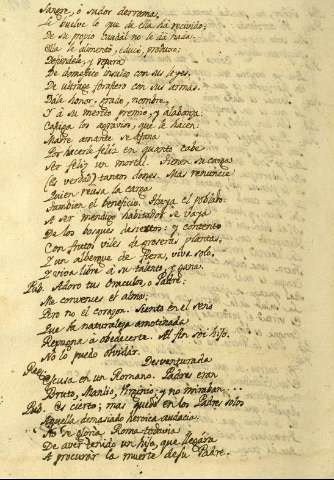 Sangre, ó sudor derrama,
Le buelve lo que de ella há recivido;
De su propio caudal no le dá nada.
Ella le alimentó, educó, protexe;
Defiendele, y
De domestico insulto con sus leyes,
De ultrage forastero con sus armas.
Dale honor, grado, nombre,
Y á su merito premio, y alabanza.
Castiga los agravios, que le hacen.
Madre amante se afana
Por hacerle feliz en quanto cabe
Ser feliz un mortal. Tienen su carga
(es verdad) tantos dones. Mas renuncie
Quien reusa la carga
Tambien el beneficio. Huya el poblado:
A ser mendigo habitador se vaya
De los bosques desiertos: y contento
Con frutos viles de groseras plantas,
Y un albergue de fiera, viva solo,
Y viva libre á su talento, y gana.
Pub. Adoro tus Oraculos, ó Padre:
Me convences el alma;
Pero no el corazon. Siento en el seno
Que la naturaleza amotinada
Repugna á obedecerte. Al fin soi hijo.
No lo puedo olvidar.
Reg. Desventurada
Escusa en un Romano. Padres eran
Bruto, Manlio, Virginio; y no miraban...
Pub. Es cierto; mas quedó en los Padres solos
Aquella demasiado heroica audacia.
No se gloria Roma todavia
De aver tenido un hijo, que llegára
A procurar la muerte de su Padre.